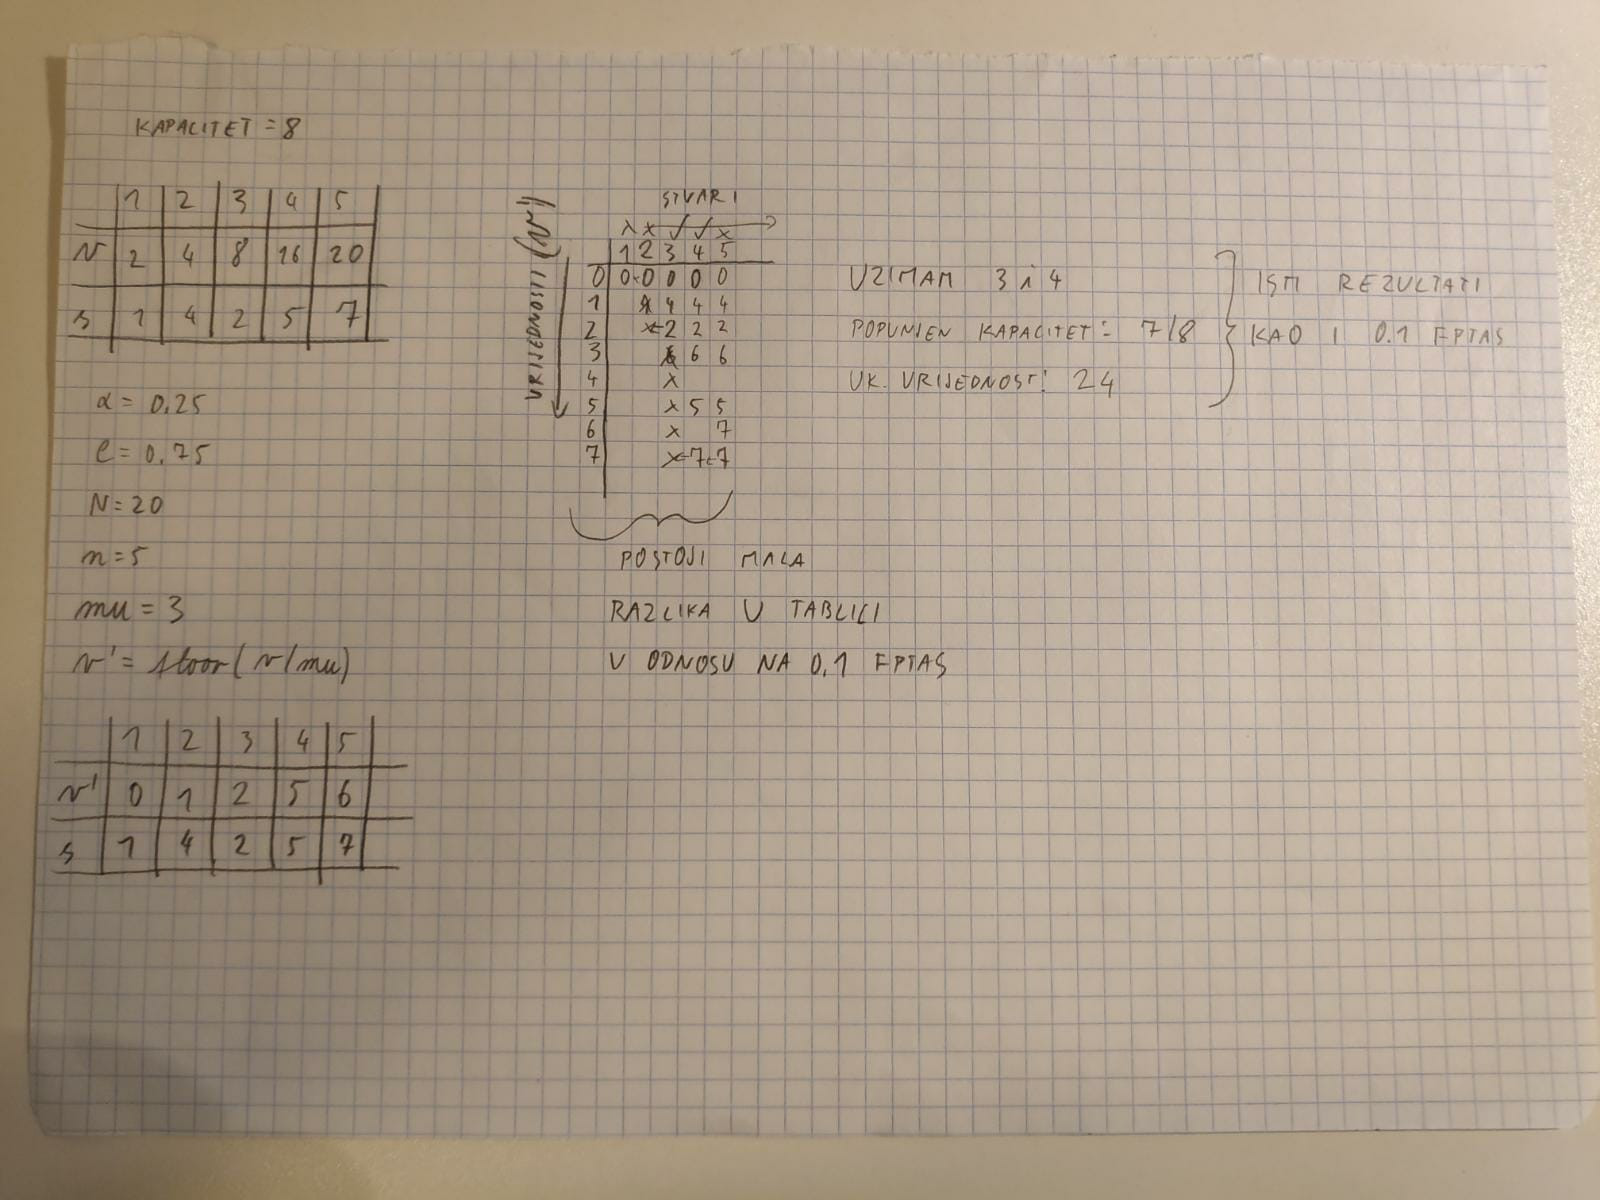 KAPACITET = 8
1 2 3 4 5
v 2 4 8 16 20
s 1 4 2 5 7
α = 0.25
e = 0.75
N = 20
n = 5
mu = 3
v' = floor(v/mu)
1 2 3 4 5
v' 0 1 2 5 6
s 1 4 2 5 7
STVARI
VRIJEDNOSTI (v')
x x ✓ ✓ x
1 2 3 4 5
0 0 0 0 0 0
1 x 4 4 4
2 x 2 2 2
3 6 6 6
4 x
5 x 5 5
6 x 7
7 x 7 7
POSTOJI MALA
RAZLIKA U TABLICI
U ODNOSU NA 0.1 FPTAS
UZIMAM 3 i 4
POPUNJEN KAPACITET: 7/8
UK. VRIJEDNOST: 24
ISTI REZULTATI
KAO I 0.1 FPTAS